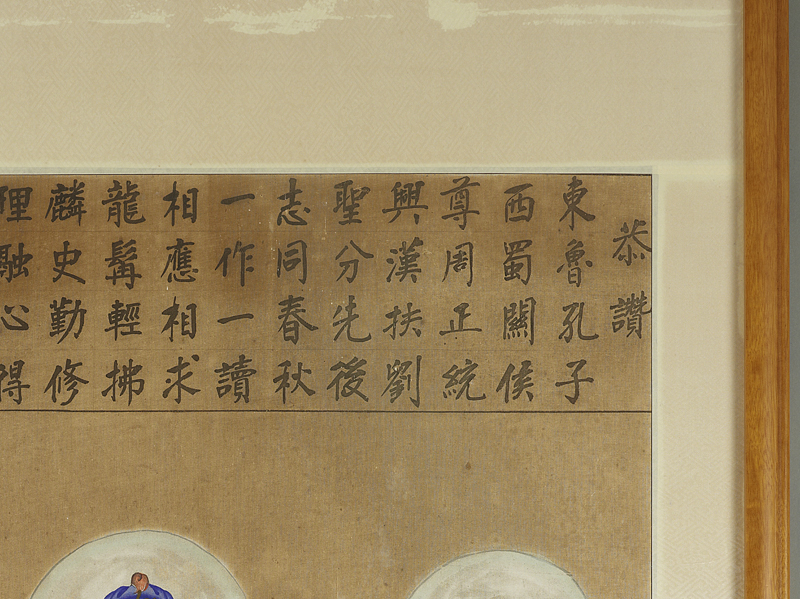 恭讚
東魯孔子
西蜀關侯
尊周正統
興漢扶劉
聖分先後
志同春秋
一作一讀
相應相求
龍髯輕拂
麟史勤修
理融心得